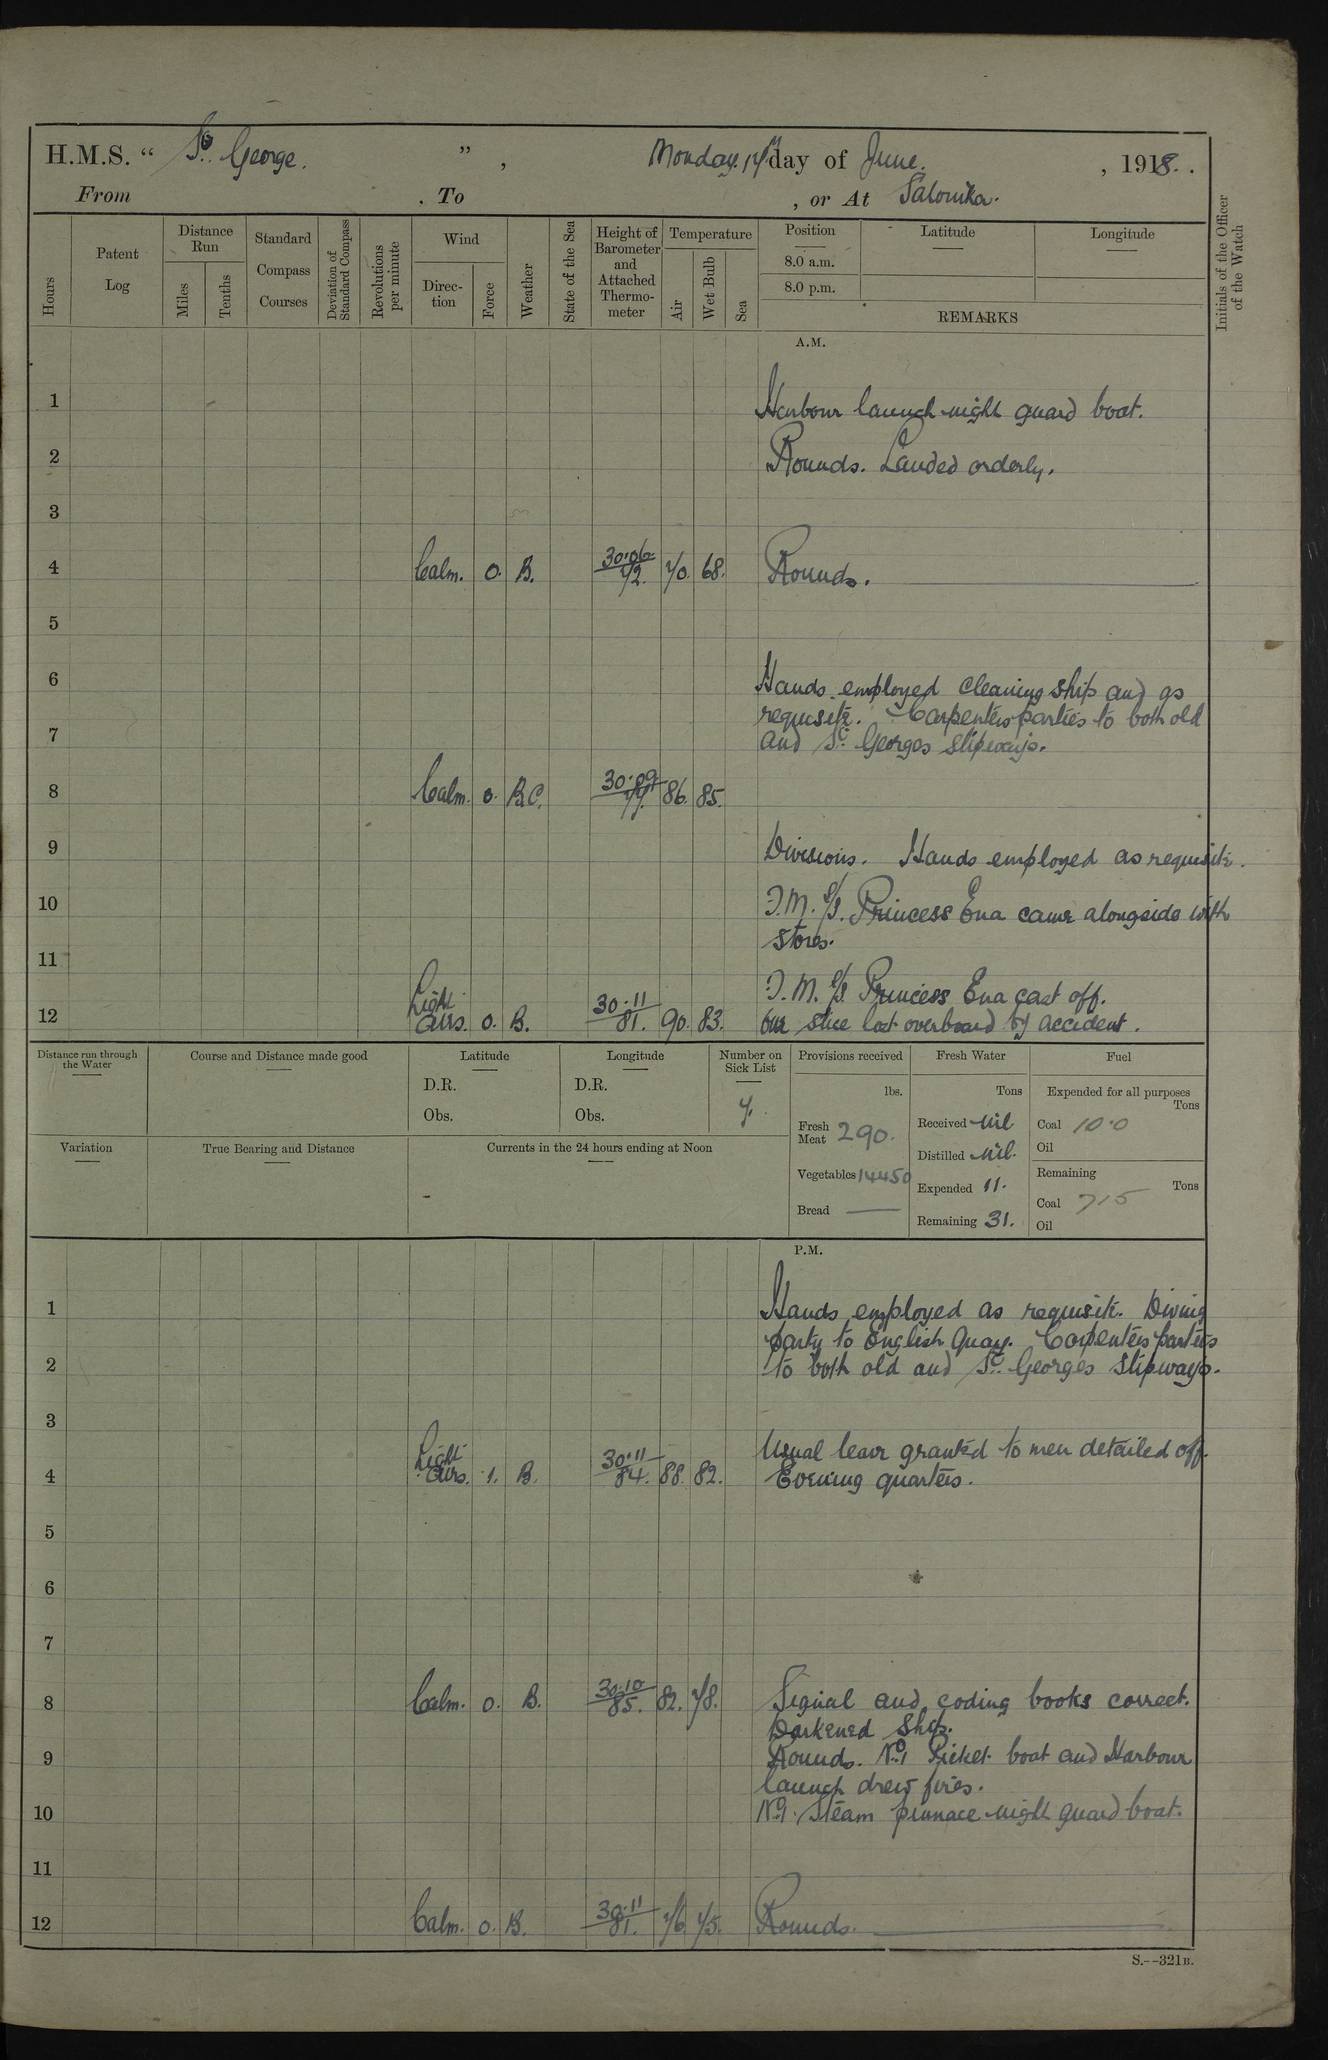 H.M.S. “ St. George. ” , Monday 17th day of June. , 1918. .
From . To , or At Salonika.
Hours
Patent Log
Distance Run
Miles
Tenths
Standard Compass Courses
Deviation of Standard Compass
Revolutions per minute
Wind
Direction
Force
Weather
State of the Sea
Height of Barometer and Attached Thermometer
Temperature
Air
Wet Bulb
Sea
Position
8.0 a.m.
8.0 p.m.
Latitude
Longitude
REMARKS
Initials of the Officer of the Watch
A.M.
1 Harbour launch night guard boat.
2 Rounds. Landed orderly.
3
4 Calm. 0. B. 30.06 72. 70. 68. Rounds.
5
6 Hands employed cleaning ship and as
requisite. Carpenters parties to both old
7 and St. Georges slipways.
8 Calm. 0. B.C. 30.09 77. 86. 85.
9 Divisions. Hands employed as requisite.
10 T.M. S/S. Princess Ena came alongside with
stores.
11
T.M. S/S. Princess Ena cast off.
12 Light airs. 0. B. 30.11 81. 90. 83. One slice lost overboard by accident.
Distance run through the Water
Course and Distance made good
Latitude
D.R.
Obs.
Longitude
D.R.
Obs.
Number on Sick List
7.
Provisions received
lbs.
Fresh Meat 290.
Vegetables 14450
Bread —
Fresh Water
Tons
Received Nil
Distilled Nil.
Expended 11.
Remaining 31.
Fuel
Expended for all purposes
Tons
Coal 10.0
Oil
Remaining
Tons
Coal 715
Oil
Variation
True Bearing and Distance
Currents in the 24 hours ending at Noon
P.M.
1 Hands employed as requisite. Diving
party to English Quay. Carpenters parties
2 to both old and St. Georges slipways.
3
Usual leave granted to men detailed off.
4 Light airs. 1. B. 30.11 84. 88. 82. Evening quarters.
5
6
7
8 Calm. 0. B. 30.10 85. 82. 78. Signal and coding books correct.
Darkened Ship.
9 Rounds. No. 1 Picket boat and Harbour
launch drew fires.
10 No. 1. Steam pinnace night guard boat.
11
12 Calm. 0. B. 30.11 81. 76. 75. Rounds.
S.--321B.